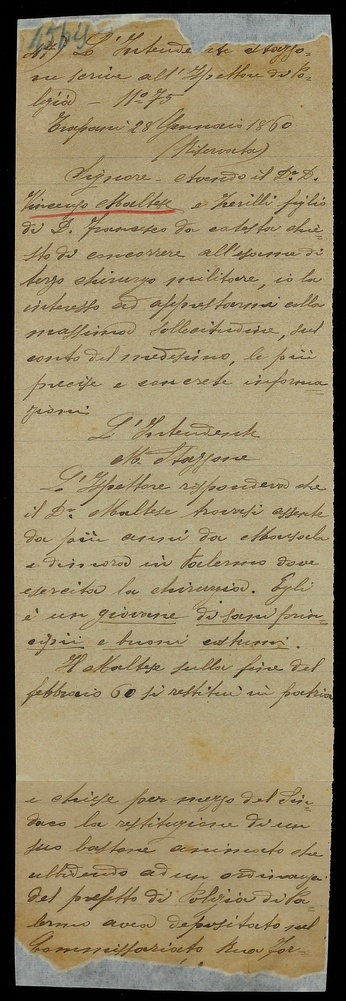 4564
L'Intendente Stazzo-
ne scrive all'Ispettore di Po-
lizia – N.º 75
Trapani 28 Gennaio 1860
(Riservata)
Signore – Avendo il D.r D.
Vincenzo Maltese e Zerilli figlio
di D. Francesco da cotesta chie-
sto di concorrere all'esame di
terzo chirurgo militare, io la
interesso ad apprestarmi colla
massima sollecitudine, sul
conto del medesimo, le più
precise e concrete informa
zioni
L'Intendente
M. Stazzone
L'Ispettore rispondeva che
il D.r Maltese trovasi assente
da più anni da Marsala
e dimora in Palermo dove
esercita la chirurgia. Egli
è un giovane di sani prin-
cipii e buoni costumi.
Il Maltese sulla fine del
febbraio 60 si restituì in patria
e chiese per mezzo del Sin-
daco la restituzione di un
suo bastone animato che
ubbidendo ad un ordinanza
del prefetto di Polizia di Pa-
lermo avea depositato nel
Commissariato